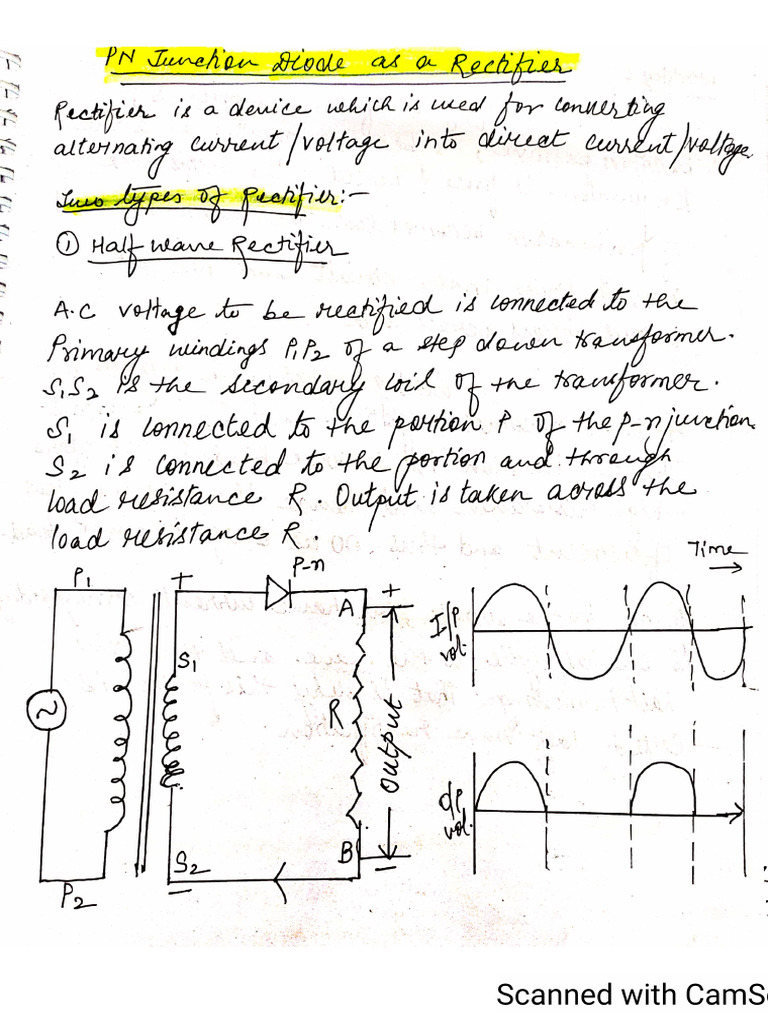 PN Junction Diode as a Rectifier
Rectifier is a device which is used for converting
alternating current/voltage into direct current/voltage.
Two types of Rectifier:-
① Half wave Rectifier
A.C voltage to be reatified is connected to the
Primary windings P₁P₂ of a step down transformer.
S₁S₂ is the secondary coil of the transformer.
S₁ is connected to the portion P of the p-n junction.
S₂ is connected to the portion and through
load resistance R. Output is taken across the
load resistance R.
P₁
+
P-n
A
+
Time
I/P
vol.
S₁
~
R
output
O/P
vol.
B
S₂
P₂
Scanned with CamSc